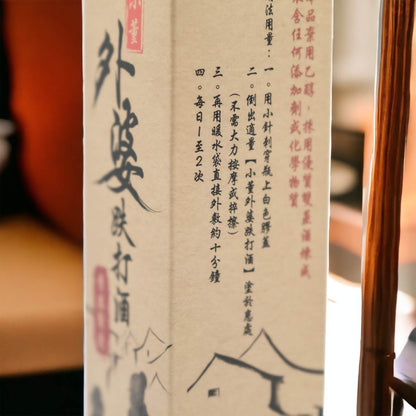 品棄用乙醇，採用優質雙蒸酒煉成
含任何添加劑或化學物質
法用量：一。用小針刺穿瓶上白色膠蓋
二。倒出適量【小董外婆跌打酒】塗於患處
（不需大力按摩或捽擦）
三。再用暖水袋直接外敷約十分鐘
四。每日1至2次
小董
外婆跌打酒